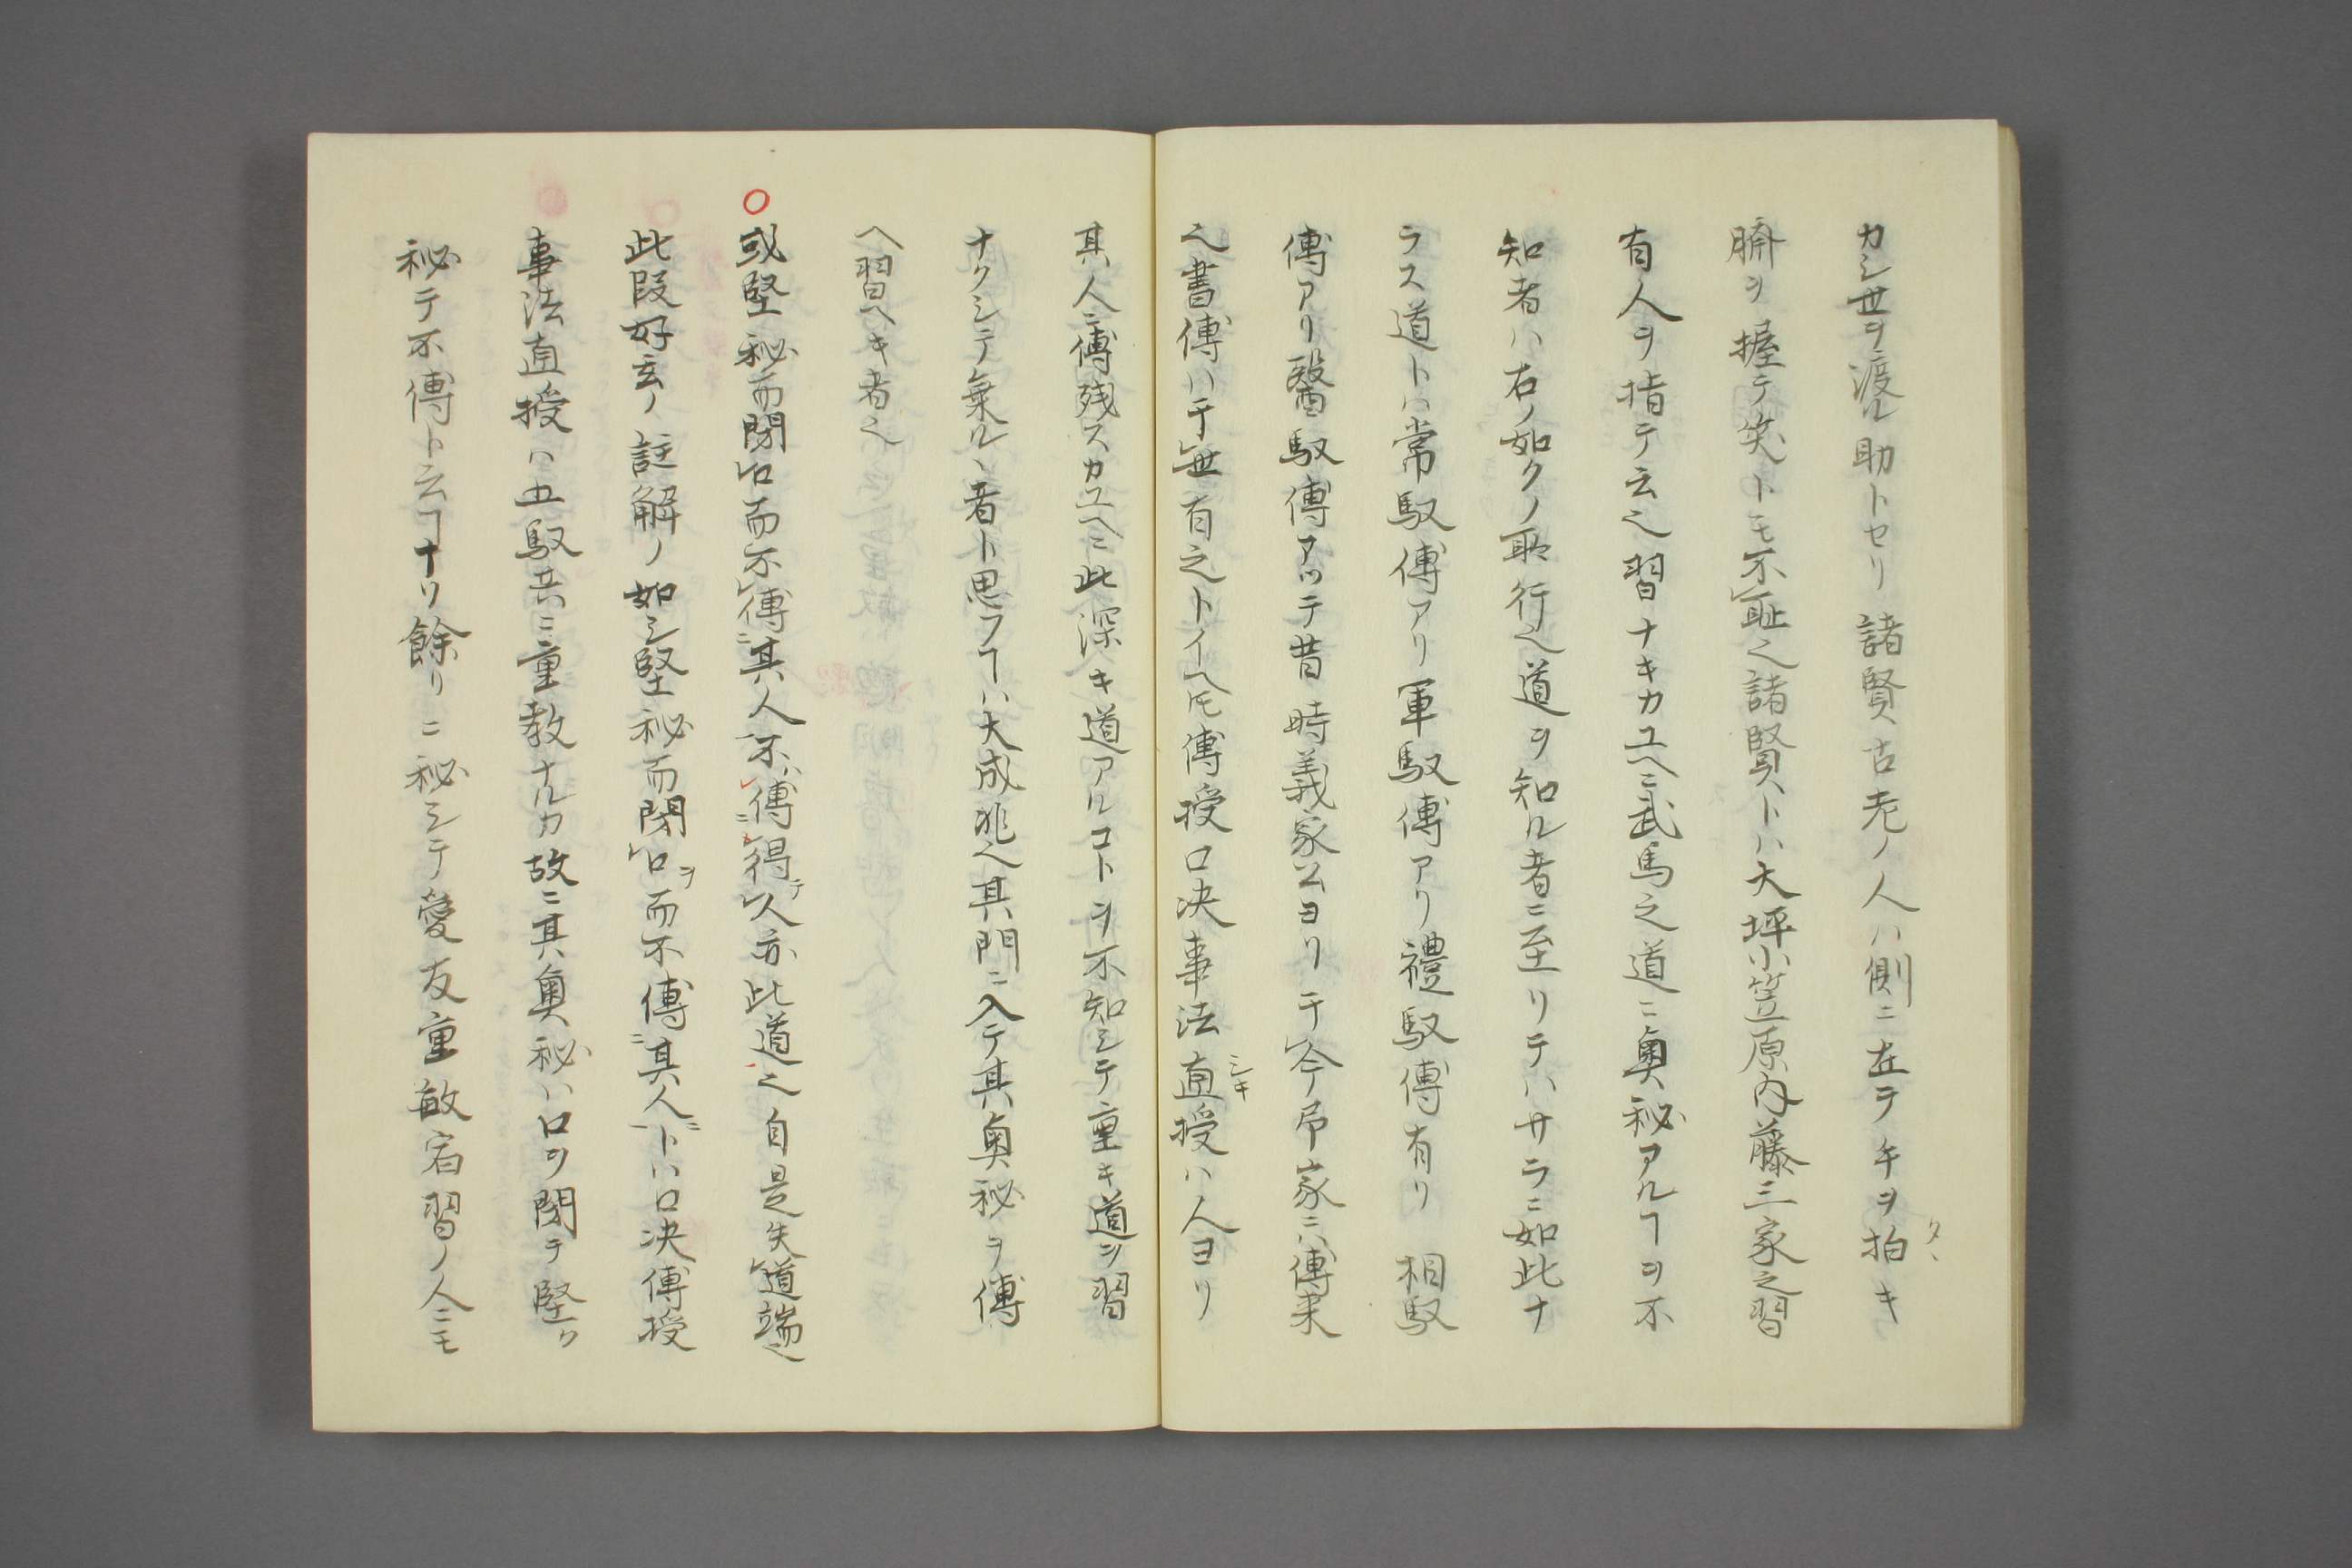 カシ世ヲ渡ル助トセリ諸賢古老ノ人ハ側ニ在テ手ヲ拍キ
臍ヲ握テ笑トモ不耻之諸賢トハ大坪小笠原内藤三家之習
有人ヲ指テ云之習ナキカユヘニ武馬之道ニ奥秘アルヿヲ不
知者ハ右ノ如クノ耻行之道ヲ知ル者ニ至リテハサラニ如此ナ
ラス道トハ常馭傳アリ軍馭傳アリ禮馭傳有リ相馭
傳アリ醫馭傳アツテ昔時義家公ヨリ于今吊家ニハ傳来
之書傳ハ于世有之トイヘ𪜈傳授口决事法直授ハ人ヨリ
其人ニ傳残スカユヘニ此深キ道アルコトヲ不知シテ重キ道ヲ習
ナクシテ乗ル、者ト思フヿハ大成非之其門ニ入テ其奥秘ヲ傳
ヘ習ヘキ者之
〇或堅秘而閉口而不傳其人不傳得人亦此道之自是失道端之
此段好玄ノ註解ノ如シ堅秘而閉口ヲ而不傳ニ其人ニトハ口决傳授
事法直授ハ五馭共ニ重教ナルカ故ニ其奥秘ハ口ヲ閉テ堅ク
秘テ不傳ト云ヿナリ餘リニ秘シテ愛友重敏宿習ノ人ニモ